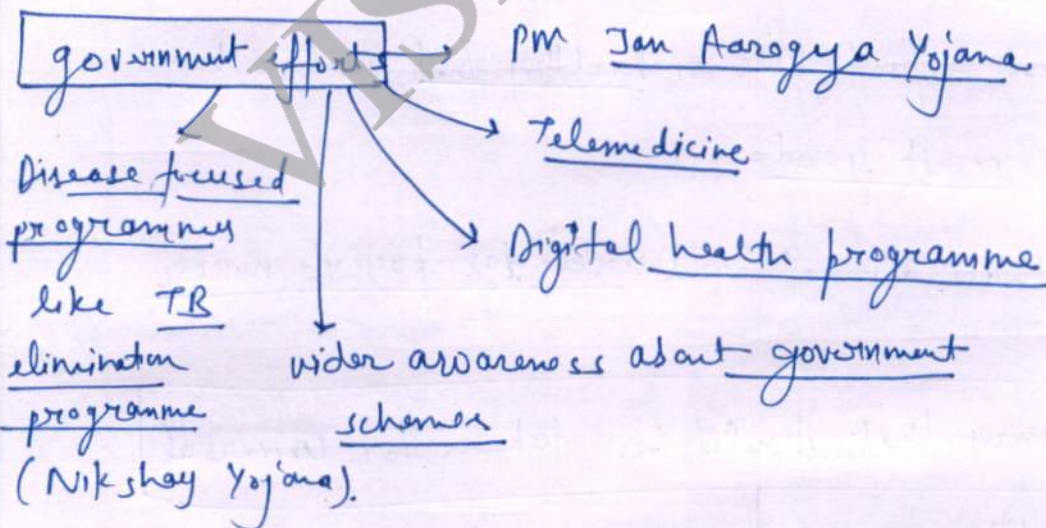 government efforts → PM Jan Aarogya Yojana
Telemedicine
Digital health programme
Disease focused
programmes
like TB
elimination
programme
(Nikshay Yojana).
wider awareness about government
schemes
VIS